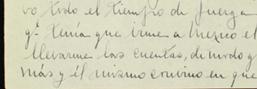 vo todo el tiempo de juerga
qe tenía que irme a Mexico el
llevarme las cuentas, de modo q
más y él mismo convino en que